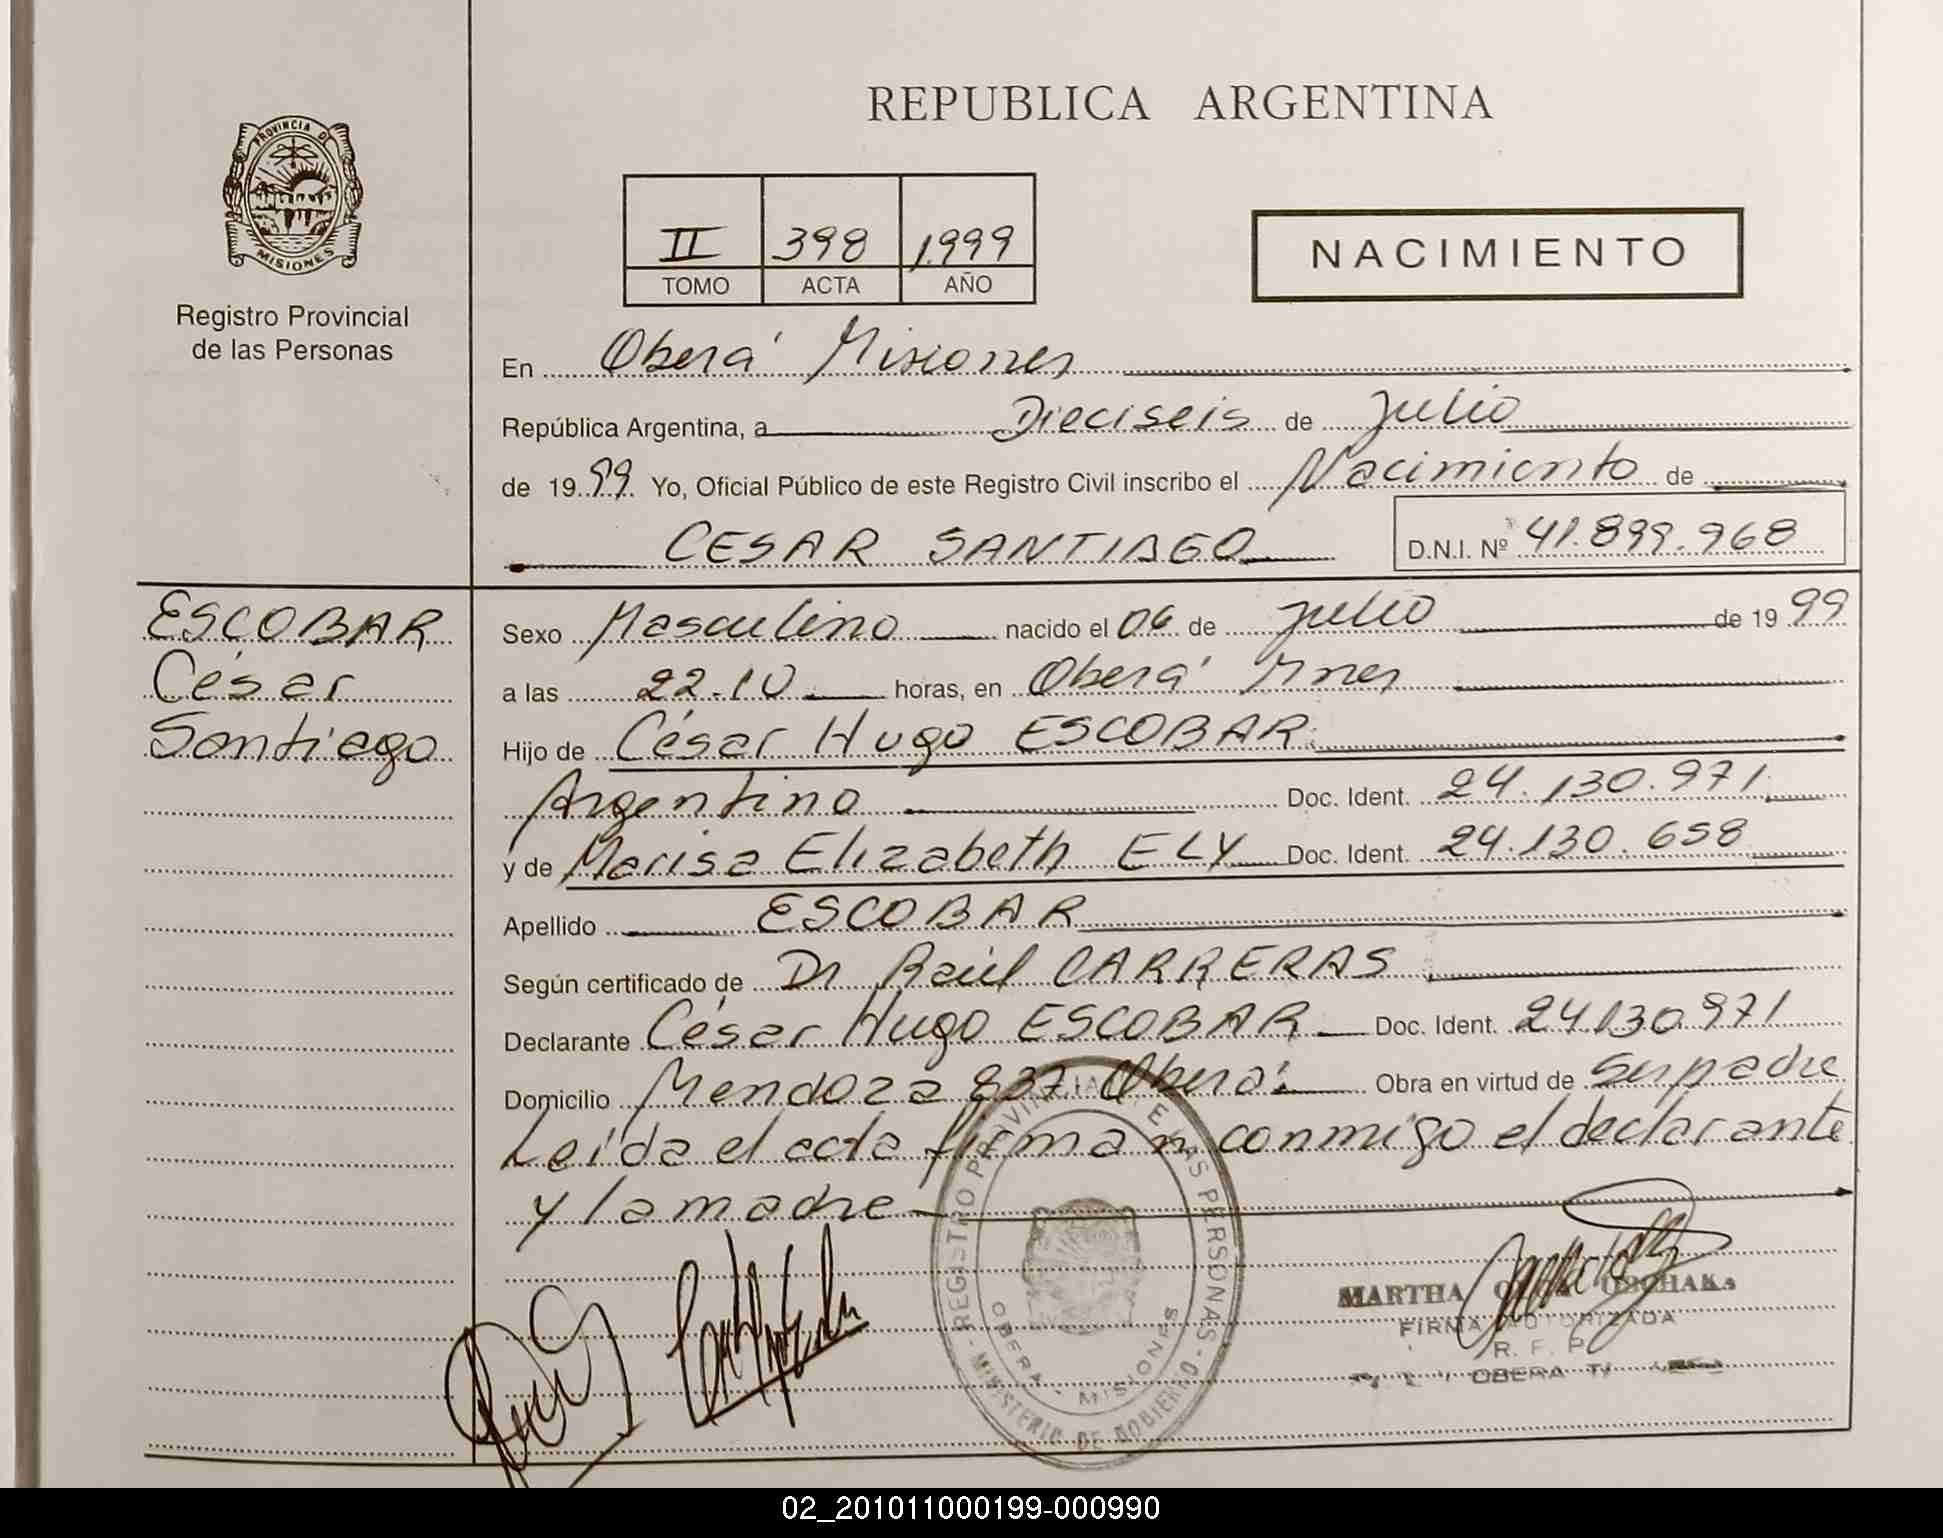 REPUBLICA ARGENTINA
PROVINCIA DE
MISIONES
Registro Provincial
de las Personas
II 398 1.999
TOMO ACTA AÑO
NACIMIENTO
En Oberá Misiones
República Argentina, a Dieciseis de Julio
de 1999 Yo, Oficial Público de este Registro Civil inscribo el Nacimiento de
CESAR SANTIAGO D.N.I. Nº 41.899.968
ESCOBAR
César
Santiago
Sexo Masculino nacido el 06 de Julio de 1999
a las 22.10 horas, en Oberá Mnes
Hijo de César Hugo ESCOBAR.
Argentino Doc. Ident. 24.130.971
y de Marisa Elizabeth ELY Doc. Ident. 24.130.658
Apellido ESCOBAR
Según certificado de Dr Raúl CARRERAS
Declarante César Hugo ESCOBAR Doc. Ident. 24130.971
Domicilio Mendoza 837 Oberá. Obra en virtud de Ser padre
Leída el acta firman conmigo el declarante
y la madre
REGISTRO PROVINCIAL DE LAS PERSONAS
OBERA - MISIONES
MINISTERIO DE GOBIERNO
MARTHA
FIRMA AUTORIZADA
R. F. P.
OBERA
02_201011000199-000990